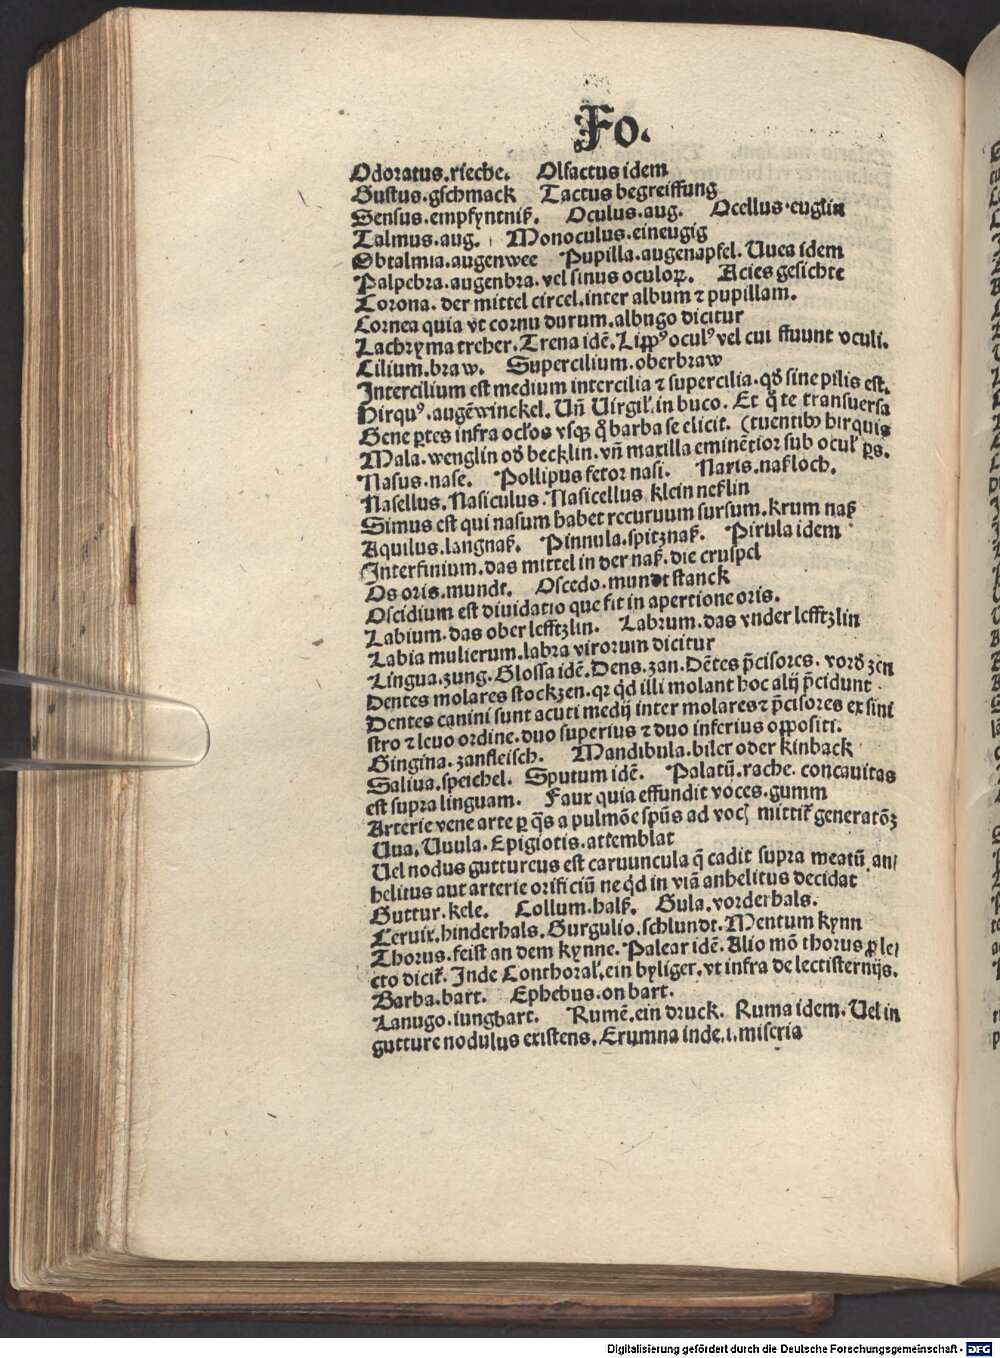 Fo.
Odoratus.rieche. Olfactus idem
Gustus.gschmack Tactus begreiffung
Sensus.empfyntniß. Oculus.aug. Ocellus.euglin
Talmus.aug. Monoculus.eineugig
Obtalmia.augenwee Pupilla.augenapfel. Uuea idem
Palpebra.augenbra.vel sinus oculoꝝ. Acies gesichte
Corona. der mittel circel.inter album ⁊ pupillam.
Cornea quia vt cornu durum.albugo dicitur
Lachryma treher.Trena idē.Lippꝰ oculꝰ vel cui ffuunt oculi.
Cilium.braw. Supercilium.oberbraw
Intercilium est medium intercilia ⁊ supercilia.qđ sine pilis est.
Hirquꝰ.augēwinckel. Uñ Uirgil̕.in buco. Et q̄ te transuersa
Gene ꝑtes infra oclos vsqꝫ q̊ barba se elicit. (tuentibꝰ hirquis
Mala.wenglin ođ becklin.vñ maxilla eminētior sub ocul̕ ꝑs.
Nasus.nase. Pollipus fetor nasi. Naris.naßloch.
Nasellus.Nasiculus.Nasicellus klein neßlin
Simus est qui nasum habet recuruum sursum.krum naß
Aquilus.langnaß. Pinnula.spitznaß. Pirula idem
Interfinium.das mittel in der naß.die cruspel
Os oris.mundt. Oscedo.mundt stanck
Oscidium est diuidatio que fit in apertione oris.
Labium.das ober lefftzlin. Labrum.das vnder lefftzlin
Labia mulierum.labra virorum dicitur
Lingua.zung.Glossa idē.Dens.zan.Dētes p̄cisores.vorđ zen
Dentes molares stockzen.qꝛ qđ illi molant hoc alij p̄cidunt
Dentes canini sunt acuti medij inter molares ⁊ p̄cisores ex sini
stro ⁊ leuo ordine.duo superius ⁊ duo inferius oppositi.
Gingina.zanfleisch. Mandibula.biler oder kinback
Saliua.speichel. Sputum idē. Palatū.rache. concauitas
est supra linguam. Faux quia effundit voces.gumm
Arterie vene arte ꝑ q̄s a pulmōe spūs ad vocꝭ mittiť generatōꝫ
Uua.Uuula.Epigiotis.attemblat
Uel nodus guttureus est caruuncula q̄ cadit supra meatū an⸗
helitus aut arterie orificiū ne qđ in viā anhelitus decidat
Guttur.kele. Collum.halß. Gula.vorderhals.
Ceruix.hinderhals.Gurgulio.schlundt.Mentum kynn
Thorus.feist an dem kynne.Palear idē.Alio mō thorus ꝓ le⸗
cto diciť. Inde Conthoral̕.ein byliger.vt infra de lectisternijs.
Barba.bart. Ephebus.on bart.
Lanugo.iungbart. Rumē.ein druck. Ruma idem.Uel in
gutture nodulus existens.Erumna inde.i.miseria
Digitalisierung gefördert durch die Deutsche Forschungsgemeinschaft - DFG